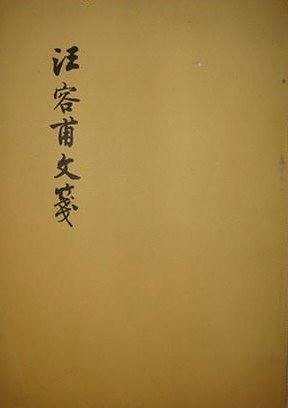 汪容甫文箋